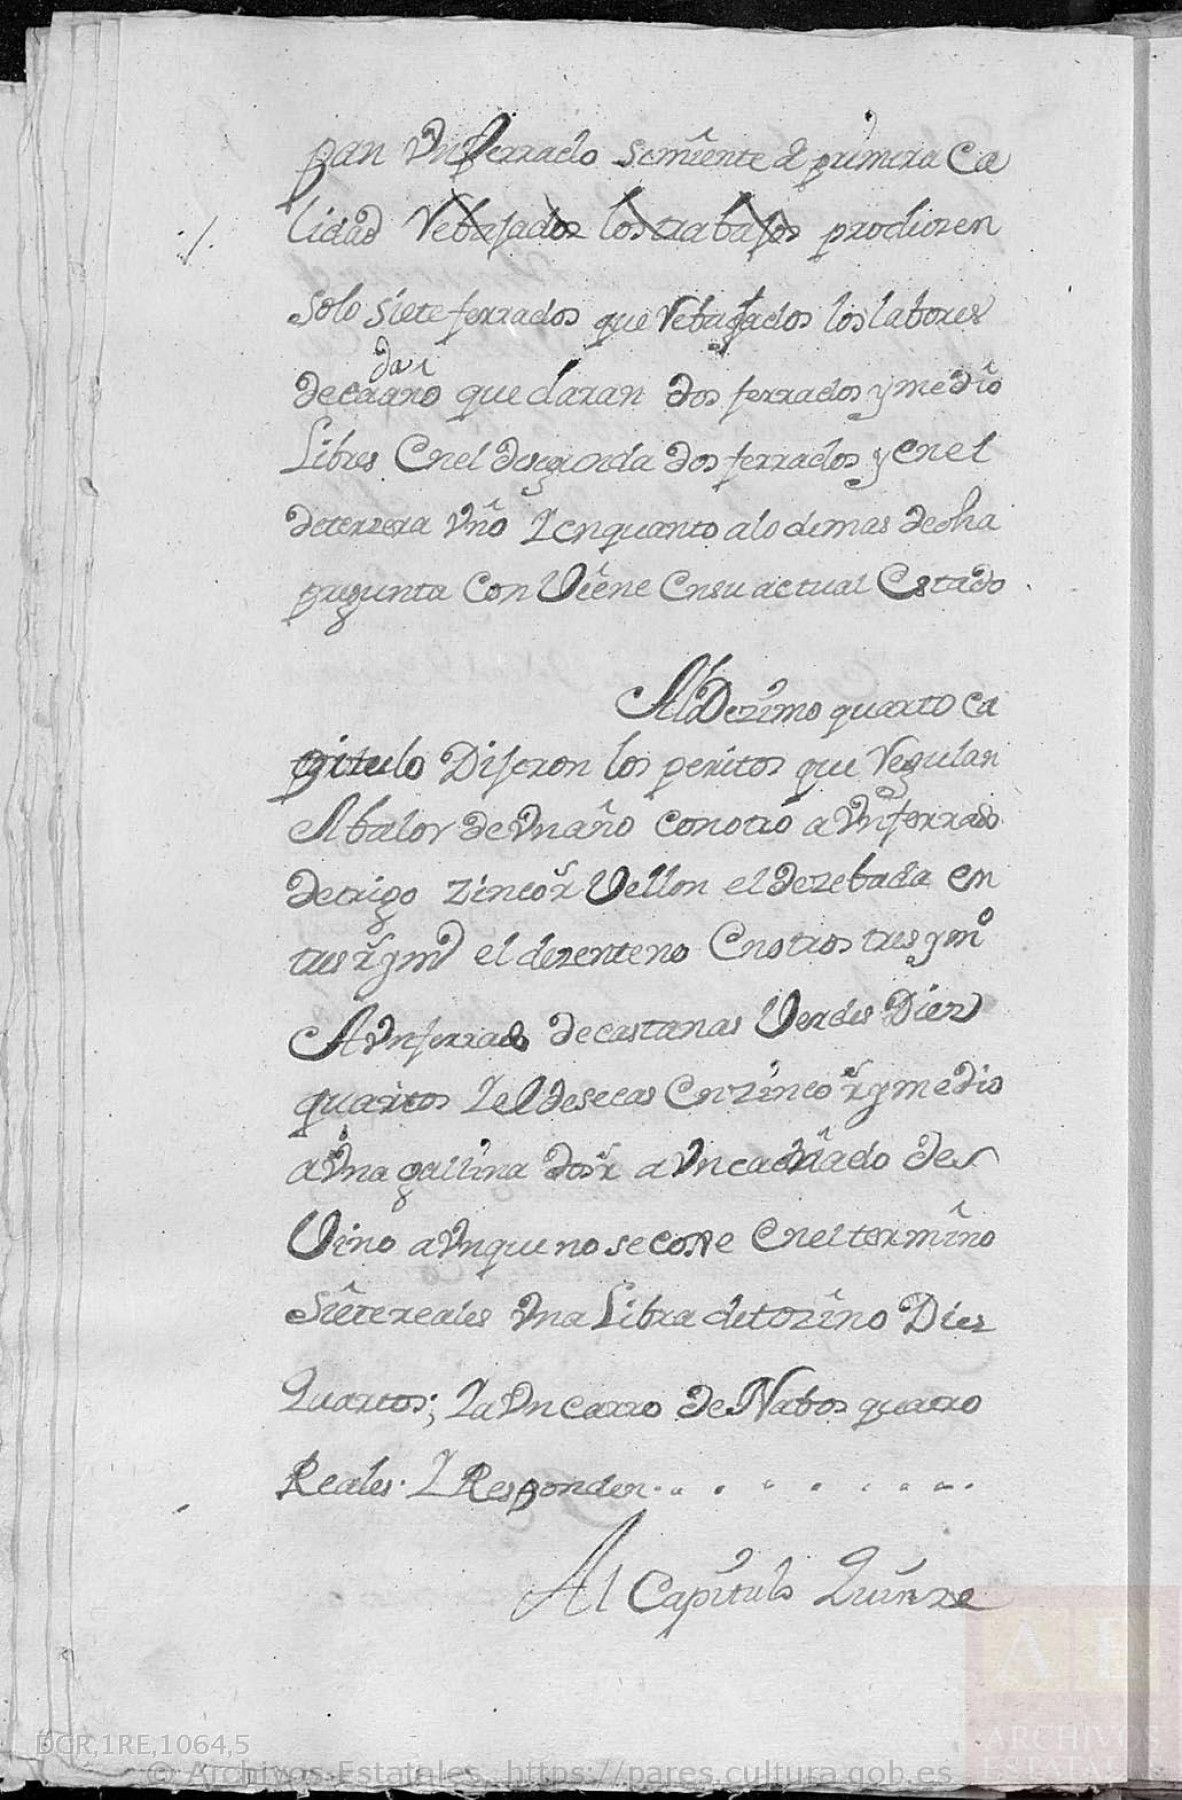 pan Unferrado semiente de primera Ca
lidad Vebajados los trabajos produzen
./.
solo siete ferrados que Vebajados los labores
decadaano quedaran dos ferrados y medio
Libres Enel desegunda dos ferrados y enel
deterzera Uno Y enquanto alo demas decha
pregunta Con Uiene Ensu actual Estado
Al Dezimo quarto ca
pitulo Dijeron los peritos que Vegulan
Abalor de Unaño conotro a Unferrado
detrigo zinco rs Uellon el dezebada en
tres rs y mo el dezenteno Enotros tres y mo
A Unferrado decastanas Uerdes Diez
quartos Y el desecas En zinco rs y medio
a Una gallina dos rs a Un cañado de
Uino a Unque no se coxe Enel termino
Siete reales Una Libra detozino Diez
Quartos; Y a Un carro de Nabos quatro
Reales. Y Responden..........
Al Capitulo Quinze
DGR,1RE,1064,5
© Archivos Estatales, https://pares.cultura.gob.es
AE
ARCHIVOS
ESTATALES